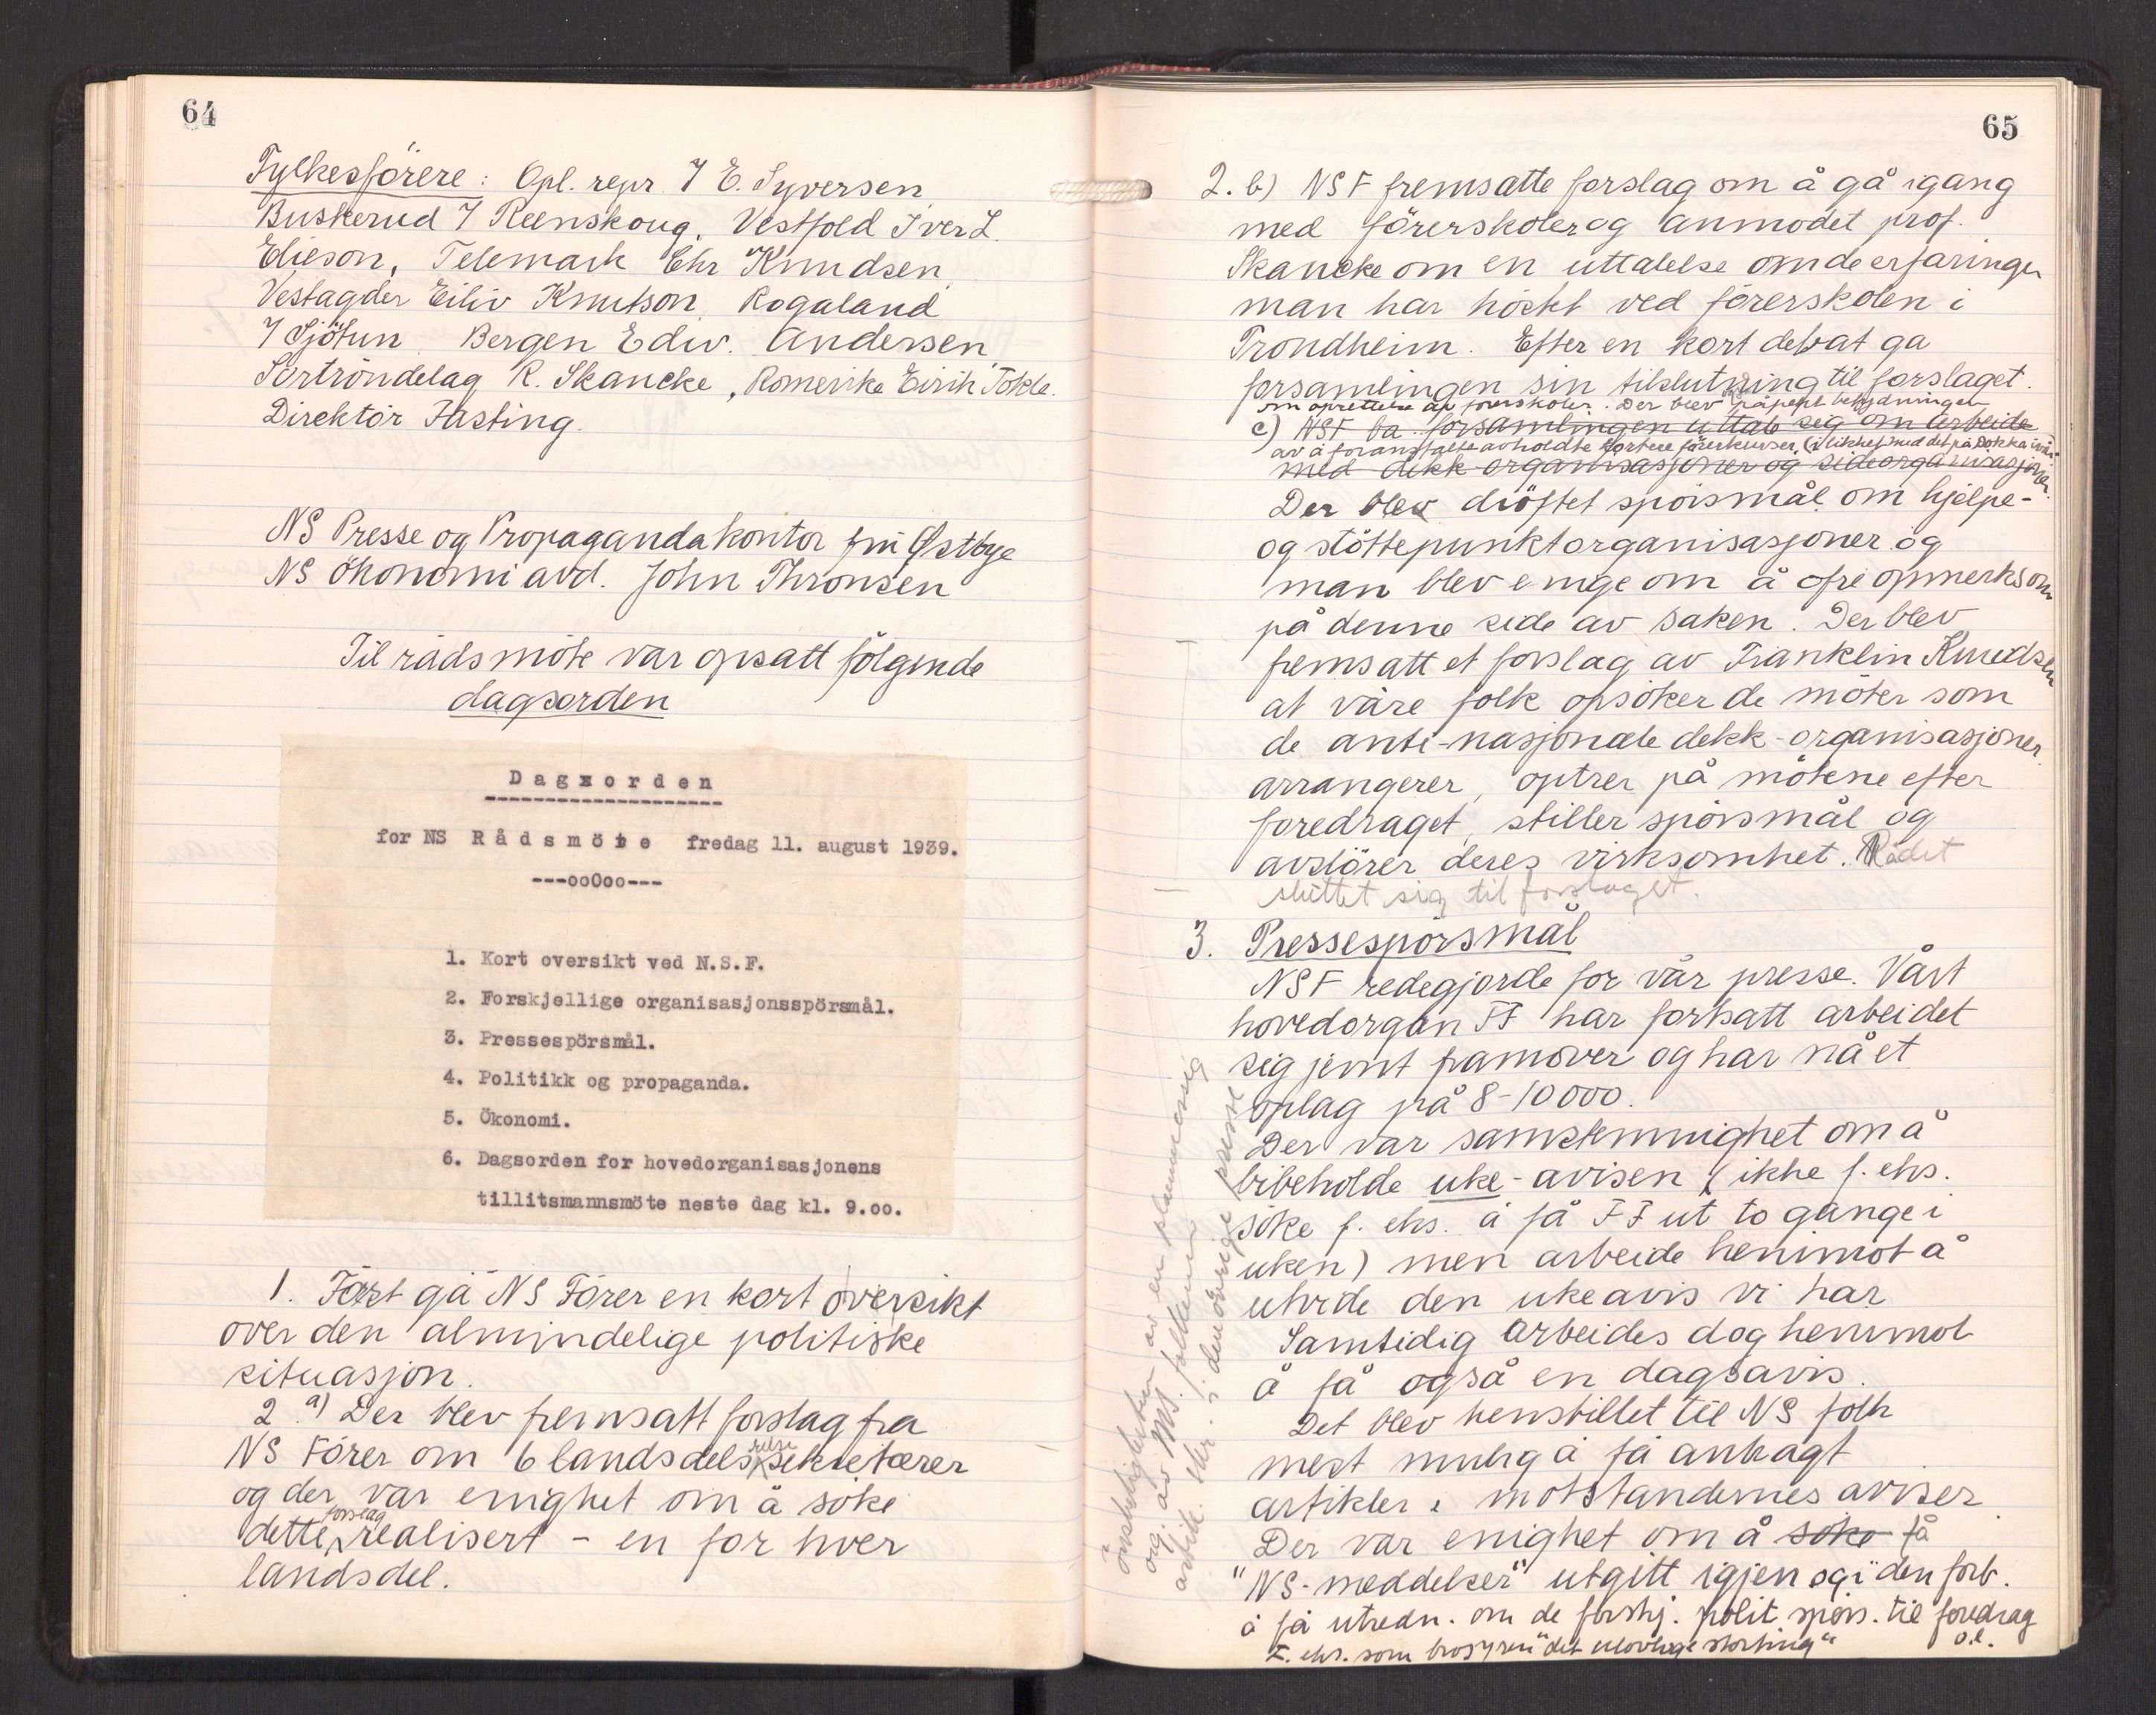 64
Fylkesförere: Opl. repr. J E. Syversen,
Buskerud J Reenskoug, Vestfold Iver L.
Elieson, Telemark Chr Knudsen,
Vestagder Eiliv Knutson, Rogaland
J Sjötun. Bergen Edw. Andersen,
Sörtröndelag R. Skancke, Romerike Eirik Tokle.
Direktör Fasting.
NS Presse og Propagandakontor frú Østbye
NS Ökonomi avd. John Thronsen
Til rådsmöte var opsatt fölgende
dagsorden
Dagsorden
for NS Rådsmöte fredag 11. august 1939.
---ooOoo---
1. Kort oversikt ved N.S.F.
2. Forskjellige organisasjonsspörsmål.
3. Pressespörsmål.
4. Politikk og propaganda.
5. Ökonomi.
6. Dagsorden for hovedorganisasjonens
tillitsmannsmöte neste dag kl. 9.oo.
1. Först ga NS Förer en kort oversikt
over den almindelige politiske
situasjon.
2 a) Der blev fremsatt forslag fra
NS Förer om 6 landsdelssekretærer
og der var enighet om å söke
dette forslag realisert - en for hver
landsdel.
65
2. b) NSF fremsatte forslag om å gå igang
med förerskoler og anmodet prof.
Skancke om en uttalelse om de erfaringer
man har höstet ved förerskolen i
Trondheim. Efter en kort debat ga
forsamlingen sin tilslutning til forslaget.
om oprettelse av förerskoler. Der blev påpekt betydningen
c) NSF ba forsamlingen uttale sig om arbeide
av å foranstalte avholdte kortere förerkurser, (i likhet med det på Dokka i
med dekk-organisasjoner og sideorganisasjoner.
Der blev dröftet spörsmål om hjelpe-
og stöttepunktorganisasjoner og
man blev enige om å ofre opmerksom
på denne side av saken. Der blev
fremsatt et forslag av Franklin Knudsen
at våre folk opsöker de möter som
de anti-nasjonale dekk-organisasjoner
arrangerer, optrer på mötene efter
foredraget, stiller spörsmål og
avslörer deres virksomhet. Rådet
sluttet sig til forslaget.
3. Pressespörsmål
NSF redegjorde for vår presse. Vårt
hovedorgan FF har fortsatt arbeidet
sig jevnt framover og har nå et
oplag på 8-10000.
Der var samstemmighet om å
bibeholde uke-avisen (ikke f. eks.
söke f. eks. å få FF ut to gange i
uken) men arbeide henimot å
utvide den ukeavis vi har
Samtidig arbeides dog henimot
å få også en dagsavis.
Det blev henstillet til NS folk
mest mulig å få anbragt
artikler i motstandernes aviser
Der var enighet om å söke få
"NS-meddelser" utgitt igjen og i den forb.
å få utredn. om de forskj. polit spörs. til foredrag
o.l.
F. eks. som brosyren "det ulovlige storting"
önskeligheten av en planmessig
org. av NS folkenes
artik. skr. i den övrige presse